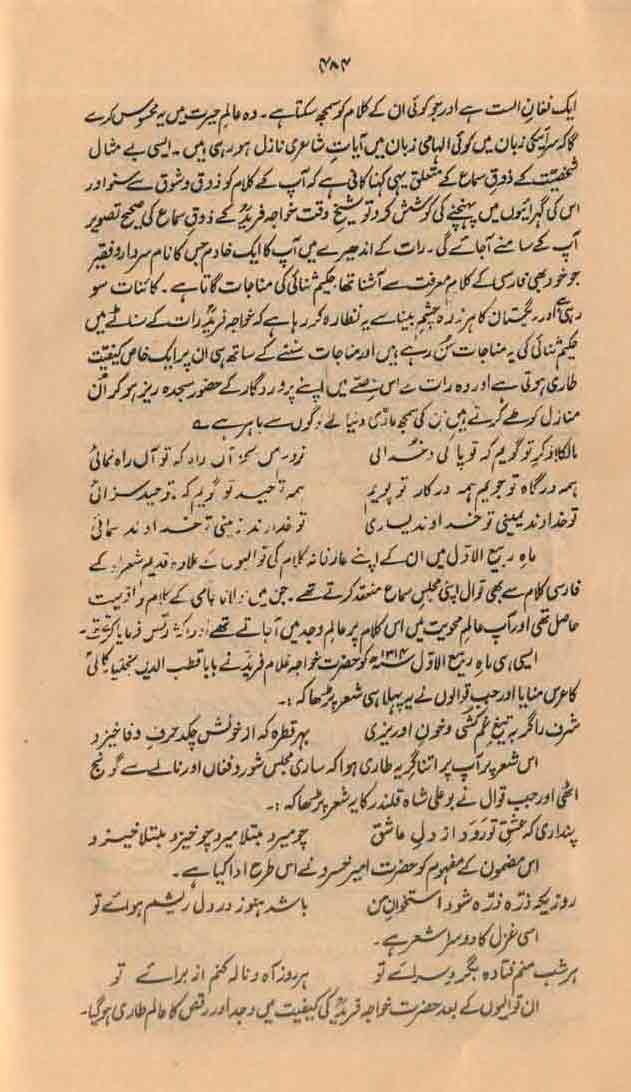 ۴۸۴
ایک نغمان الست ہے اور جو کوئی ان کے کلام کو سمجھ سکتا ہے۔ وہ عالمِ حیرت میں یہ محسوس کرے
گا کہ سرائیکی زبان میں کوئی الہامی زبان میں آیاتِ شاعری نازل ہو رہی ہیں۔ ایسی بے مثال
شخصیت کے ذوقِ سماع کے متعلق یہی کہنا کافی ہے کہ آپ کے کلام کو ذوق و شوق سے سنو اور
اس کی گہرائیوں میں پہنچنے کی کوشش کرو تو شیخِ وقت خواجہ فریدؒ کے ذوقِ سماع کی صحیح تصویر
آپ کے سامنے آجائے گی۔ رات کے اندھیرے میں آپ کا ایک خادم جس کا نام سردارو فقیر
جو خود بھی فارسی کے کلامِ معرفت سے آشنا تھا، حکیم ثنائی کی مناجات گاتا ہے۔ کائنات سو
رہی ہے اور ریگستان کا ہر ذرہ چشمِ بینا سے یہ نظارہ کر رہا ہے کہ خواجہ فریدؒ رات کے سناٹے میں
حکیم ثنائی کی یہ مناجات سُن رہے ہیں اور مناجات سننے کے ساتھ ہی ان پر ایک خاص کیفیت
طاری ہوتی ہے اور وہ رات کے اس حصے میں اپنے پروردگار کے حضور سجدہ ریز ہو کر اُن
منازل کو طے کرتے ہیں جن کی سمجھ مادی دنیا کے لوگوں سے باہر ہے
ملکا ذکرِ تو گویم کہ تو پاکی و خدائی نروم جز آں راہ کہ تو آں راہ نمائی
ہمہ درگاہ تو جویم ہمہ در کار تو پویم ہمہ توحید تو گویم کہ بتوحید سزائی
تو خداوند یمینی تو خداوند یساری تو خداوند زمینی تو خداوند سمائی
ماہِ ربیع الاوّل میں ان کے اپنے عارفانہ کلام کی قوالیوں کے علاوہ قدیم شعراء کے
فارسی کلام سے بھی قوال اپنی مجلسِ سماع منعقد کرتے تھے۔ جن میں مولانا جامی کے کلام کو اولیت
حاصل تھی اور آپ عالمِ محویت میں اس کلام پر عالمِ وجد میں آجاتے تھے اور اکثر رقص فرمایا کرتے تھے۔
ایسی ہی ماہ ربیع الاوّل ۱۳۱۴ھ کو حضرت خواجہ غلام فریدؒ نے بابا قطب الدین بختیار کاکیؒ
کا عرس منایا اور جب قوالوں نے یہ پہلا ہی شعر پڑھا کہ :۔
شرف را گر بہ تیغِ غم کشی و خونِ او ریزی بہر قطرہ کہ از خونش چکد حرفِ وفا خیزد
اس شعر پر آپ پر اتنا گریہ طاری ہوا کہ ساری مجلس شور و فغاں اور نالے سے گونج
اٹھی اور جب قوال نے بو علی شاہ قلندر کا یہ شعر پڑھا کہ :۔
پنداری کہ عشقِ تو رَوَد از دلِ عاشق چو میرد مبتلا میرد چو خیزد مبتلا خیزد
اس مضمون کے مفہوم کو حضرت امیر خسرو نے اس طرح ادا کیا ہے۔
روزیکہ ذرہ ذرہ شود استخوانِ من باشد ہنوز در دل ریشم ہوائے تو
اسی غزل کا دوسرا شعر ہے۔
ہر شب منم فتادہ بگرد سرائے تو ہر روز آہ و نالہ کنم از برائے تو
ان قوالیوں کے بعد حضرت خواجہ فریدؒ کی کیفیت میں وجد اور رقص کا عالم طاری ہو گیا۔